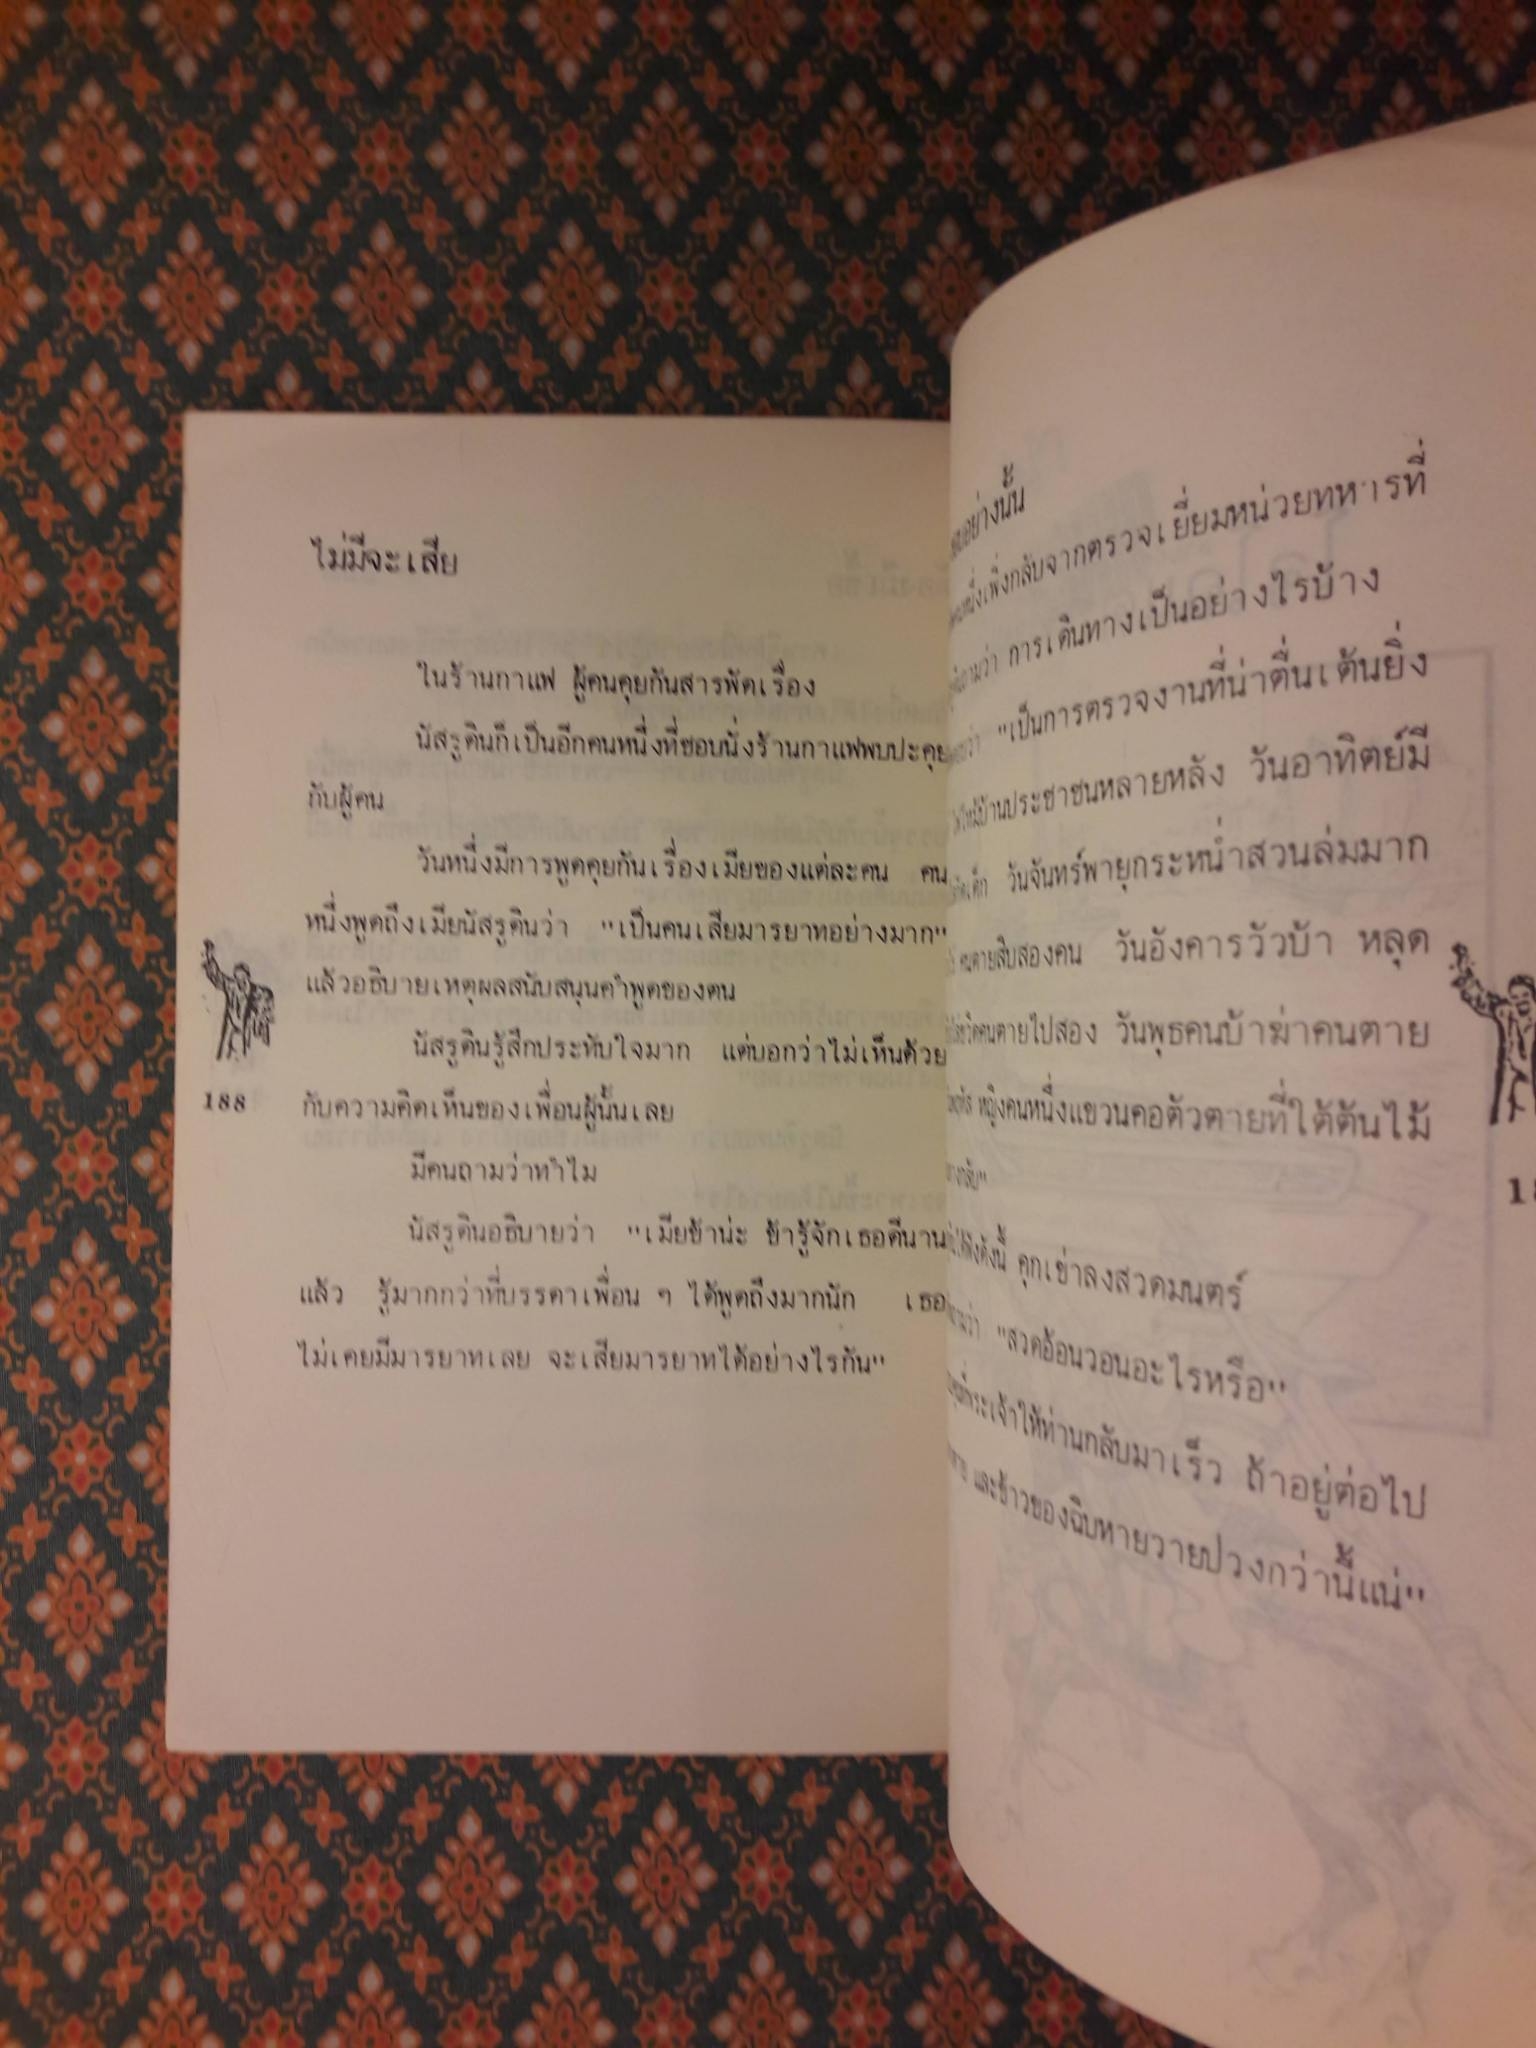 ไม่มีจะเสีย
ในร้านกาแฟ ผู้คนคุยกันสารพัดเรื่อง
นัสรูดินก็เป็นอีกคนหนึ่งที่ชอบนั่งร้านกาแฟพบปะคุย
กับผู้คน
วันหนึ่งมีการพูดคุยกันเรื่องเมียของแต่ละคน คน
หนึ่งพูดถึงเมียนัสรูดินว่า "เป็นคนเสียมารยาทอย่างมาก"
แล้วอธิบายเหตุผลสนับสนุนคำพูดของตน
นัสรูดินรู้สึกประทับใจมาก แต่บอกว่าไม่เห็นด้วย
กับความคิดเห็นของเพื่อนผู้นั้นเลย
มีคนถามว่าทำไม
นัสรูดินอธิบายว่า "เมียข้าน่ะ ข้ารู้จักเธอดีนาน
แล้ว รู้มากกว่าที่บรรดาเพื่อน ๆ ได้พูดถึงมากนัก เธอ
ไม่เคยมีมารยาทเลย จะเสียมารยาทได้อย่างไรกัน"
188
อย่างนั้น
หนึ่งเพิ่งกลับจากตรวจเยี่ยมหน่วยทหารที่
ถามว่า การเดินทางเป็นอย่างไรบ้าง
ว่า "เป็นการตรวจงานที่น่าตื่นเต้นยิ่ง
ไหม้บ้านประชาชนหลายหลัง วันอาทิตย์มี
เด็ก วันจันทร์พายุกระหน่ำสวนล่มมาก
คนตายสิบสองคน วันอังคารวัวบ้า หลุด
คนตายไปสอง วันพุธคนบ้าฆ่าคนตาย
หญิงคนหนึ่งแขวนคอตัวตายที่ใต้ต้นไม้
ได้ฟังดังนี้ คุกเข่าลงสวดมนตร์
ถามว่า "สวดอ้อนวอนอะไรหรือ"
พระเจ้าให้ท่านกลับมาเร็ว ถ้าอยู่ต่อไป
และข้าวของฉิบหายวายปวงกว่านี้แน่"